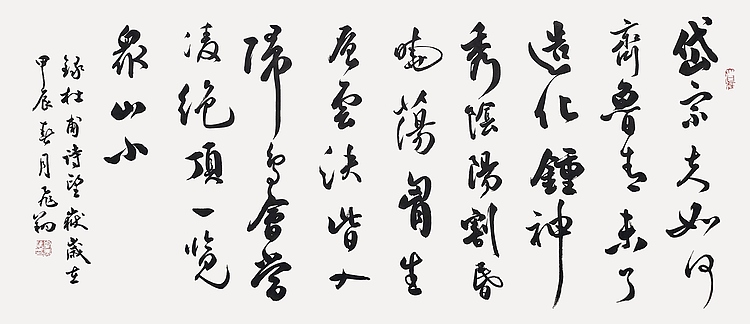 岱宗夫如何
齊魯青未了
造化鍾神
秀陰陽割昏
曉蕩胷生
層雲決眥入
歸鳥會當
凌絕頂一覽
眾山小
錄杜甫詩望嶽歲在
甲辰春月